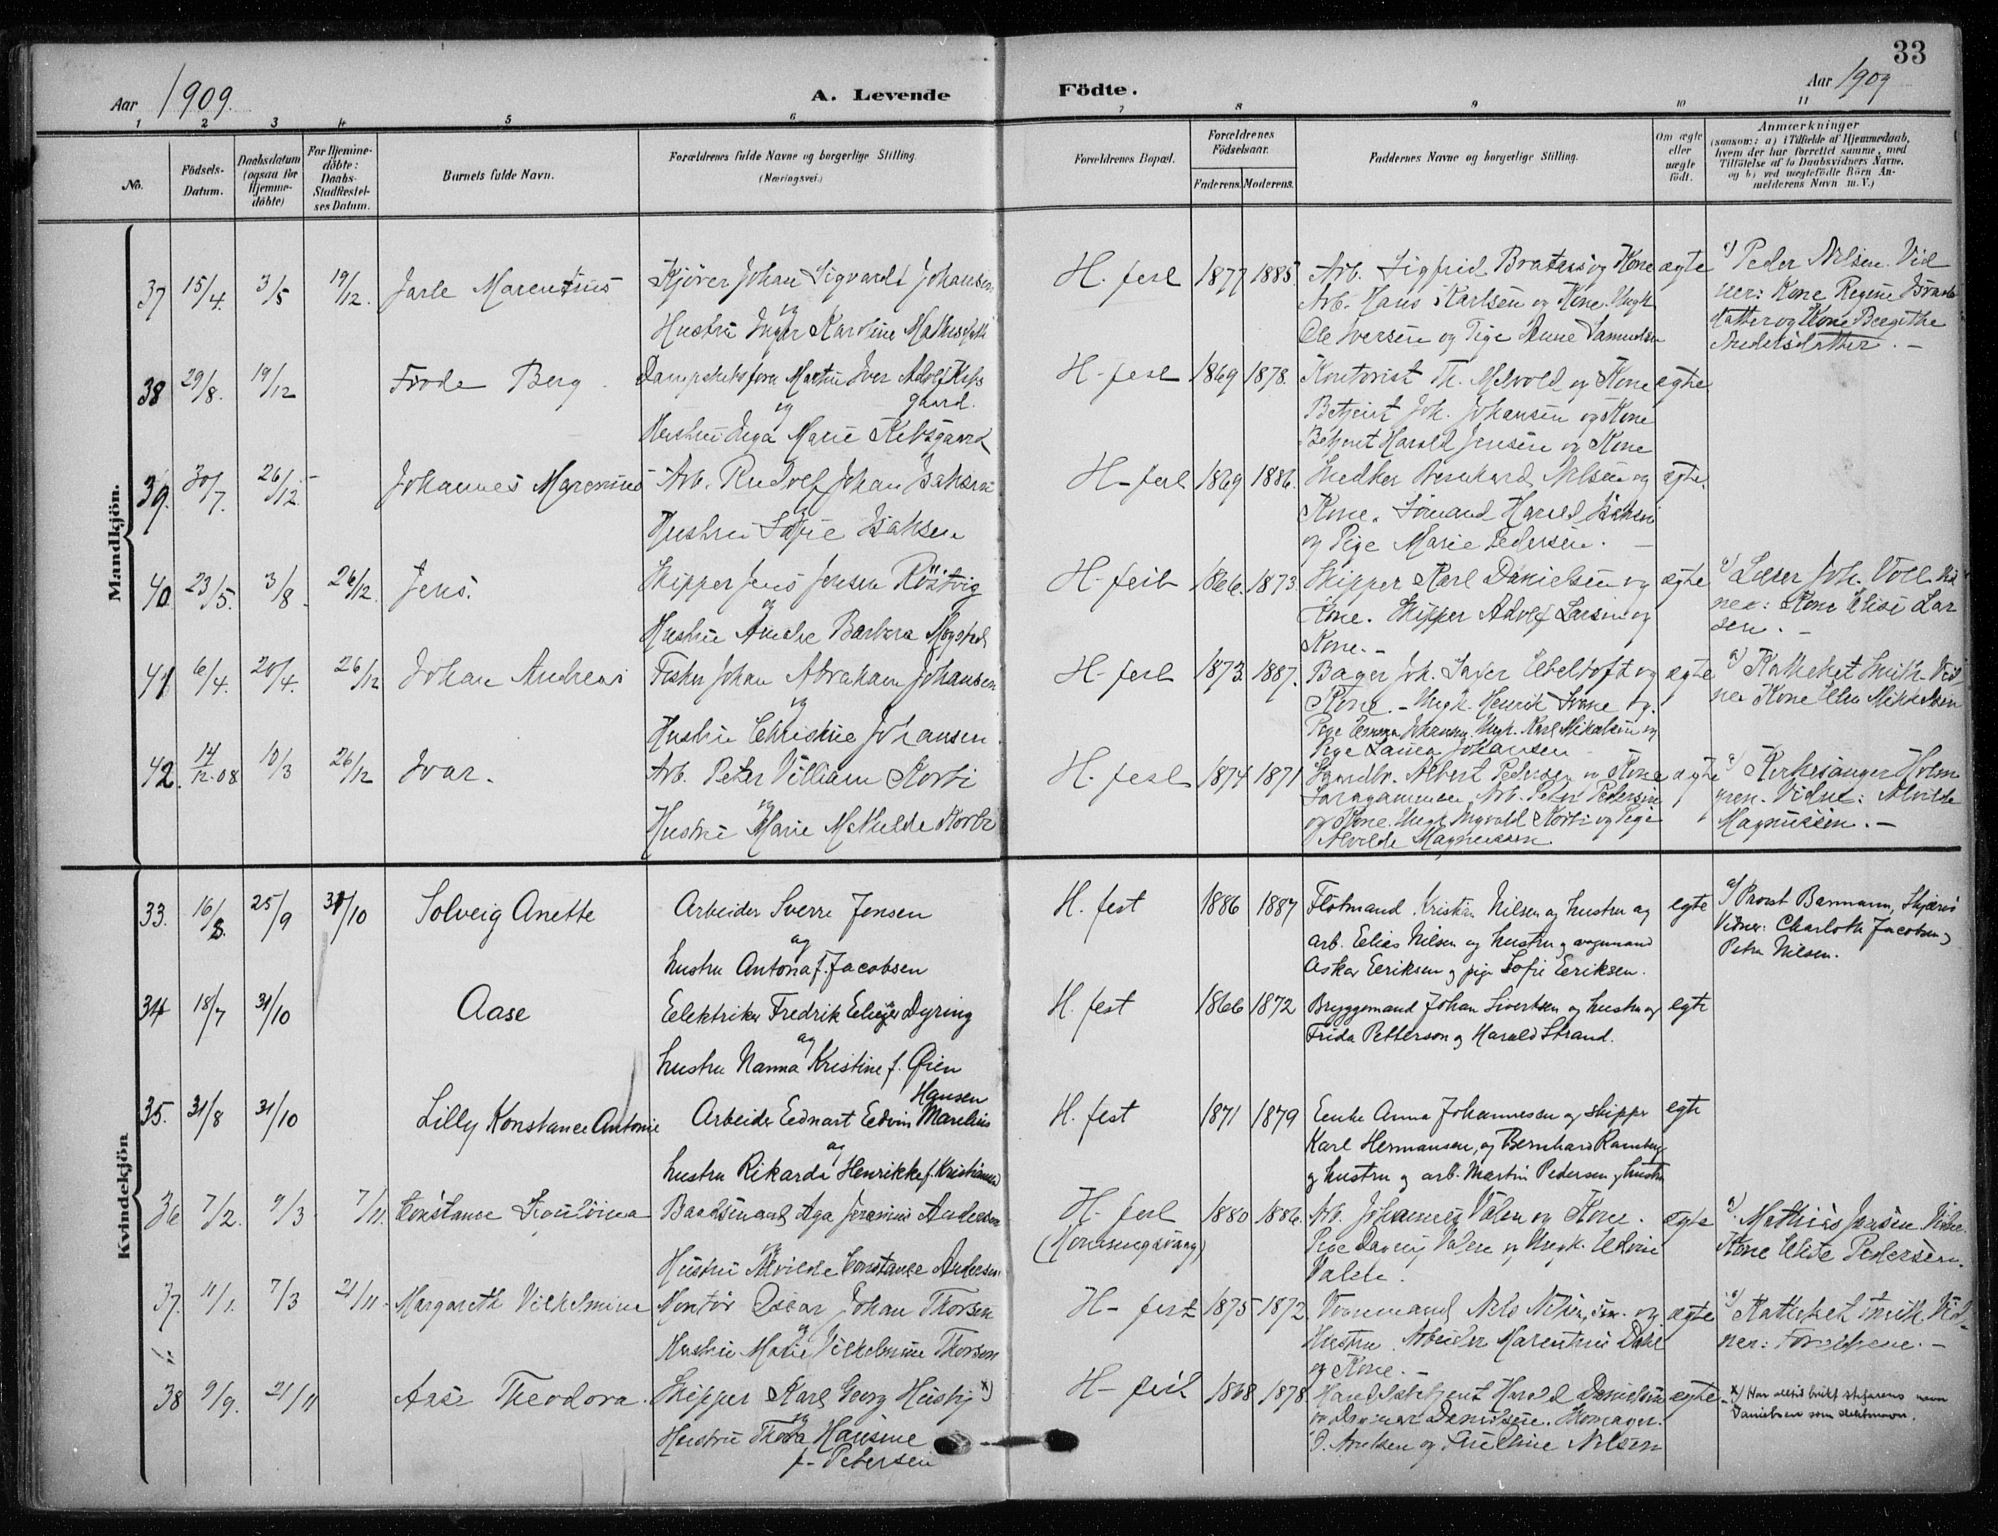 33
Aar 1909.
A. Levende
Födte.
Aar 1909
1 2 3 4 5 6 7 8 9 10 11
No.
Födsels-
Datum.
Daabsdatum
(ogsaa for
Hjemme-
döbte)
For Hjemme-
döbte:
Daabs-
Stadfæstel-
ses Datum.
Barnets fulde Navn.
Forældrenes fulde Navne og borgerlige Stilling.
(Næringsvei.)
Forældrenes Bopæl.
Forældrenes
Födselsaar.
Faderens. Moderens.
Faddernes Navne og borgerlige Stilling.
Om ægte
eller
uægte
födt.
Anmærkninger
(saasom: a) i Tilfælde af Hjemmedaab,
hvem der har forrettet samme, med
Tilföielse af to Daabsvidners Navne.
og b) ved uægtefödte Börn An-
melderens Navn m. V.)
Mandkjön.
37 15/4. 3/5 19/12. Jarle Marentius
Kjörer Johan Sigvard Johansen
og
Hustru Karoline
H. fest 1877 1885.
Arb. Sigfrid og Kone
Arb. Hans Karlsen og Kone. Ungk.
Ole Iversen og Pige Anne Samuelsen
ægte
a) Peder Nilsen. Vid
ner: Kone Regine
datter og Kone Bergithe
Andersdatter. -
38 29/8. 19/12 Frode Berg.
Martin Iver Adolf Kjels
gaard.
og
Hustru Inga Marie
H. fest 1869 1878.
Kontorist Th. Melvold og Kone
Betjent Joh. Johansen og Kone
Betjent Harald Jensen og Kone
ægte
39. 30/7. 26/12. Johannes Marenius
Arb. Rudolf Johan Isaksen
og
Hustru Sofie Isaksen
H. fest 1869 1886.
Bernhard Nilsen og
Kone. Harald Isaksen
og Pige Marie Pedersen. -
ægte.
40. 23/5. 3/8. 26/12. Jens.
Skipper Jens Jensen Röstvig
og
Hustru Amalie Barbara
H. fest 1866. 1873.
Skipper Karl Danielsen og
Kone. Skipper Adolf Larsen og
Kone. -
ægte
a) Læser Joh. Voll. Vid
ner: Kone Elise Lar
sen. -
41 6/4. 20/4. 26/12 Johan Andreas
Fisker Johan Abraham Johansen
og
Hustru Christine Johansen
H. fest 1873. 1887.
Bager Joh. Ebeltoft og
Kone. - Ungk. Henrik og
Pige Emma Johansen, Ungk. Karl Mikalsen og
Pige Laura Johansen
ægte
a) Kateket Smith. Vid
ner Kone Ellen Mikkelsen
42. 14/12.08 10/3 26/12 Ivar.
Arb. Peter Villiam Korbi
og
Hustru Marie Mathilde Korbi
H. fest 1874 1871
Gaardbr. Albert Pedersen og Kone
Arb. Peter Pedersen
og Kone. Ungk. Ingvald Korbi og Pige
Alvilde Magnussen.
ægte
a) Kirkesanger Holm
gren. Vidne: Alvilde
Magnussen. -
Kvindekjön
33. 16/8. 25/9 31/10 Solveig Anette
Arbeider Sverre Jensen
og
hustru Antona f. Jacobsen
H. fest 1886 1887
Flötmand Kristian Nilsen og hustru og
arb. Elias Nilsen og hustru og vognmand
Askar Eeriksen og pige Sofie Eeriksen.
egte
a) Provst Barmann, Skjærvö
Vidner: Charloth Jacobsen og
Petra Nilsen.
34 18/7 31/10 Aase
Eelektriker Fredrik Dyring
og
hustru Nanna Kristine f. Øien
H. fest 1866 1872
Bryggemand Johan Sivertsen og hustru og
Frida Petterson og Harald Strand.
egte
35. 31/8 31/10 Lilly Konstance Antonie
Hansen
Arbeider Eednart Eedvin Marelius
og
hustru Rikarda Henrikke f. Kristiansen
H. fest 1871 1879
Eenke Anna Johannesen og skipper
Karl Hermansen, og Bernhard Ramberg
og hustru og arb. Martin Pedersen og hustru
egte
36 7/2. 9/3 7/11. Constance
Baadsmand Aga Andersen
og
Hustru Alvilde Constance Andersen
H. fest
(Honningsvaag)
1880 1886.
Arb. Johannes Valen og Kone.
Pige Dagny og Ungk. Edvin
Valde.
ægte
a) Mathias Jensen. Vidne
Kone Elise Pedersen.
37. 11/1. 7/3 21/11. Margareth Vilhelmine
Kontor Oscar Johan Thorsen
og
Hustru Marie Vilhelmine Thorsen
H. fest 1875 1872.
Vognmand Nils Nilsen, sen. og
Hustru. Arbeider Marentius Dahl
og Kone. -
ægte
a) Kateket Smith. Vid-
ner: Forældrene. -
38 9/9. 21/11 Aase Theodora.
Skipper Karl Georg Husby x)
og
Hustru Thora Hansine
f. Petersen
H. fest 1868 1878.
Handelsbetjent Harald Danielsen
og Danielsen.
og Pauline Nilsen
ægte
x) Har altid brukt stefarens navn
Danielsen som slektsnavn.